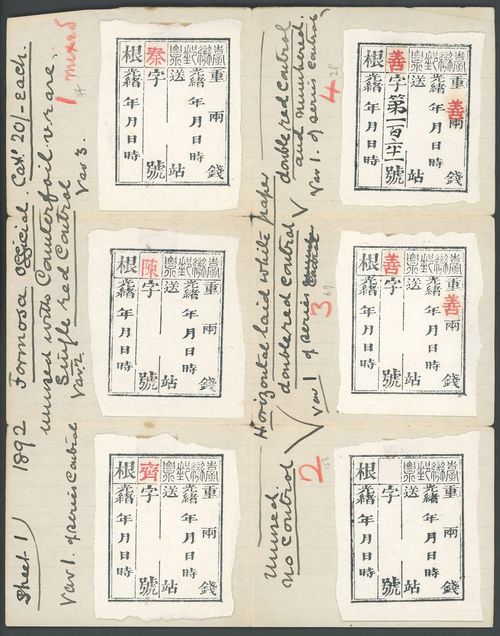 Sheet 1) 1892 Formosa Official Catt 20/- each.
unused with Counterfoil v. rare.
Single red Control
Var 1. of series Control
Var 2.
Var 3
1 mixed
臺灣郵票
重 兩 錢
光緒 年月日時
送 站
秦字 號
根 光緒 年月日時
臺灣郵票
重 兩 錢
光緒 年月日時
送 站
陳字 號
根 光緒 年月日時
臺灣郵票
重 兩 錢
光緒 年月日時
送 站
齊字 號
根 光緒 年月日時
Horizontal laid white paper
Unused.
no Control
2
double red Control
Var 1 of series
3
69
double red Control
and numbered.
Var 1. of series Control
4
28
臺灣郵票
重 善 兩 錢
光緒 年月日時
送 站
善字第一百 號
根 光緒 年月日時
臺灣郵票
重 兩 善 錢
光緒 年月日時
送 站
善字 號
根 光緒 年月日時
臺灣郵票
重 兩 錢
光緒 年月日時
送 站
字 號
根 光緒 年月日時